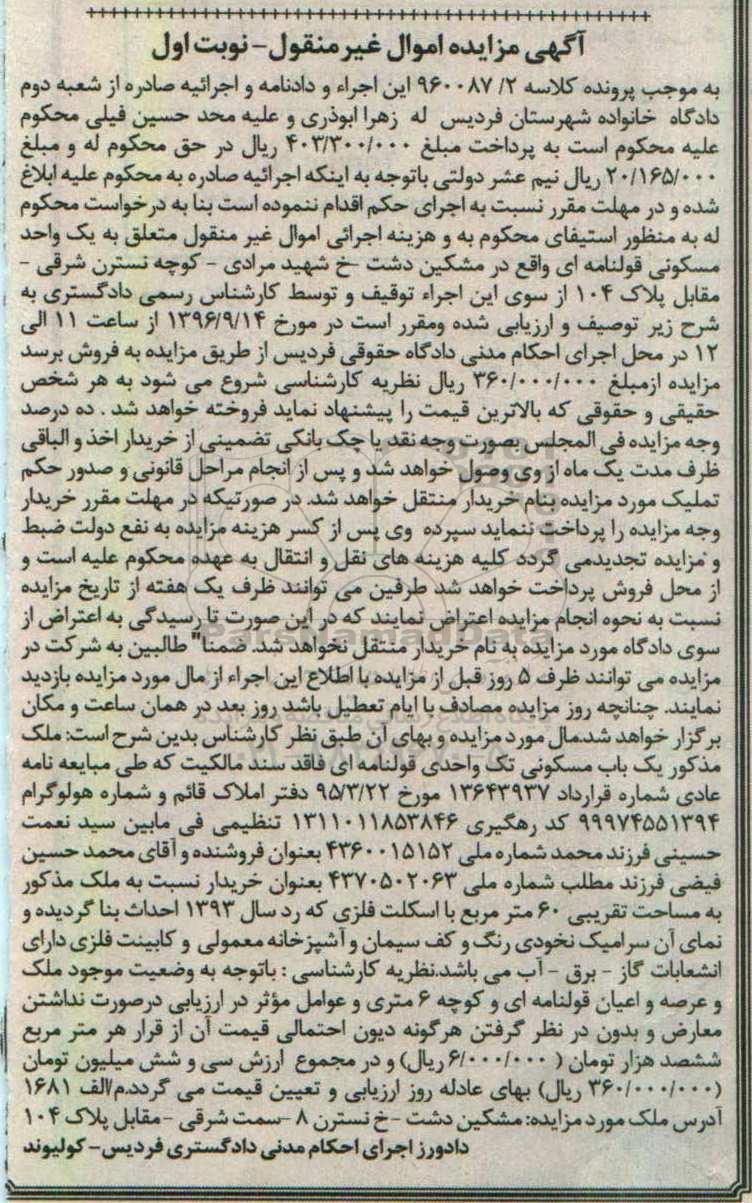 آگهی مزایده اموال غیرمنقول - نوبت اول
به موجب پرونده کلاسه ۲/ ۹۶۰۰۸۷ این اجراء و دادنامه و اجرائیه صادره از شعبه دوم
دادگاه خانواده شهرستان فردیس له زهرا ابوذری و علیه محد حسین فیلی محکوم
علیه محکوم است به پرداخت مبلغ ۴۰۳/۳۰۰/۰۰۰ ریال در حق محکوم له و مبلغ
۲۰/۱۶۵/۰۰۰ ریال نیم عشر دولتی باتوجه به اینکه اجرائیه صادره به محکوم علیه ابلاغ
شده و در مهلت مقرر نسبت به اجرای حکم اقدام ننموده است بنا به درخواست محکوم
له به منظور استیفای محکوم به و هزینه اجرائی اموال غیر منقول متعلق به یک واحد
مسکونی قولنامه ای واقع در مشکین دشت -خ شهید مرادی - کوچه نسترن شرقی -
مقابل پلاک ۱۰۴ از سوی این اجراء توقیف و توسط کارشناس رسمی دادگستری به
شرح زیر توصیف و ارزیابی شده ومقرر است در مورخ ۱۳۹۶/۹/۱۴ از ساعت ۱۱ الی
۱۲ در محل اجرای احکام مدنی دادگاه حقوقی فردیس از طریق مزایده به فروش برسد
مزایده ازمبلغ ۳۶۰/۰۰۰/۰۰۰ ریال نظریه کارشناسی شروع می شود به هر شخص
حقیقی و حقوقی که بالاترین قیمت را پیشنهاد نماید فروخته خواهد شد . ده درصد
وجه مزایده فی المجلس بصورت وجه نقد یا چک بانکی تضمینی از خریدار اخذ و الباقی
ظرف مدت یک ماه از وی وصول خواهد شد و پس از انجام مراحل قانونی و صدور حکم
تملیک مورد مزایده بنام خریدار منتقل خواهد شد. در صورتیکه در مهلت مقرر خریدار
وجه مزایده را پرداخت ننماید سپرده وی پس از کسر هزینه مزایده به نفع دولت ضبط
و مزایده تجدیدمی گردد کلیه هزینه های نقل و انتقال به عهده محکوم علیه است و
از محل فروش پرداخت خواهد شد طرفین می توانند ظرف یک هفته از تاریخ مزایده
نسبت به نحوه انجام مزایده اعتراض نمایند که در این صورت تا رسیدگی به اعتراض از
سوی دادگاه مورد مزایده به نام خریدار منتقل نخواهد شد. ضمنا" طالبین به شرکت در
مزایده می توانند ظرف ۵ روز قبل از مزایده با اطلاع این اجراء از مال مورد مزایده بازدید
نمایند. چنانچه روز مزایده مصادف با ایام تعطیل باشد روز بعد در همان ساعت و مکان
برگزار خواهد شد.مال مورد مزایده و بهای آن طبق نظر کارشناس بدین شرح است: ملک
مذکور یک باب مسکونی تک واحدی قولنامه ای فاقد سند مالکیت که طی مبایعه نامه
عادی شماره قرارداد ۱۳۶۴۳۹۳۷ مورخ ۹۵/۳/۲۲ دفتر املاک قائم و شماره هولوگرام
۹۹۹۷۴۵۵۱۳۹۴ کد رهگیری ۱۳۱۱۰۱۱۸۵۳۸۴۶ تنظیمی فی مابین سید نعمت
حسینی فرزند محمد شماره ملی ۴۳۶۰۰۱۵۱۵۲ بعنوان فروشنده و آقای محمد حسین
فیضی فرزند مطلب شماره ملی ۴۳۷۰۵۰۲۰۶۳ بعنوان خریدار نسبت به ملک مذکور
به مساحت تقریبی ۶۰ متر مربع با اسکلت فلزی که رد سال ۱۳۹۳ احداث بنا گردیده و
نمای آن سرامیک نخودی رنگ و کف سیمان و آشپزخانه معمولی و کابینت فلزی دارای
انشعابات گاز - برق - آب می باشد.نظریه کارشناسی : باتوجه به وضعیت موجود ملک
و عرصه و اعیان قولنامه ای و کوچه ۶ متری و عوامل مؤثر در ارزیابی درصورت نداشتن
معارض و بدون در نظر گرفتن هرگونه دیون احتمالی قیمت آن از قرار هر متر مربع
ششصد هزار تومان ( ۶/۰۰۰/۰۰۰ ریال) و در مجموع ارزش سی و شش میلیون تومان
(۳۶۰/۰۰۰/۰۰۰ ریال) بهای عادله روز ارزیابی و تعیین قیمت می گردد.م/الف ۱۶۸۱
آدرس ملک مورد مزایده: مشکین دشت -خ نسترن ۸ -سمت شرقی -مقابل پلاک ۱۰۴
دادورز اجرای احکام مدنی دادگستری فردیس- کولیوند
ParsNamadData